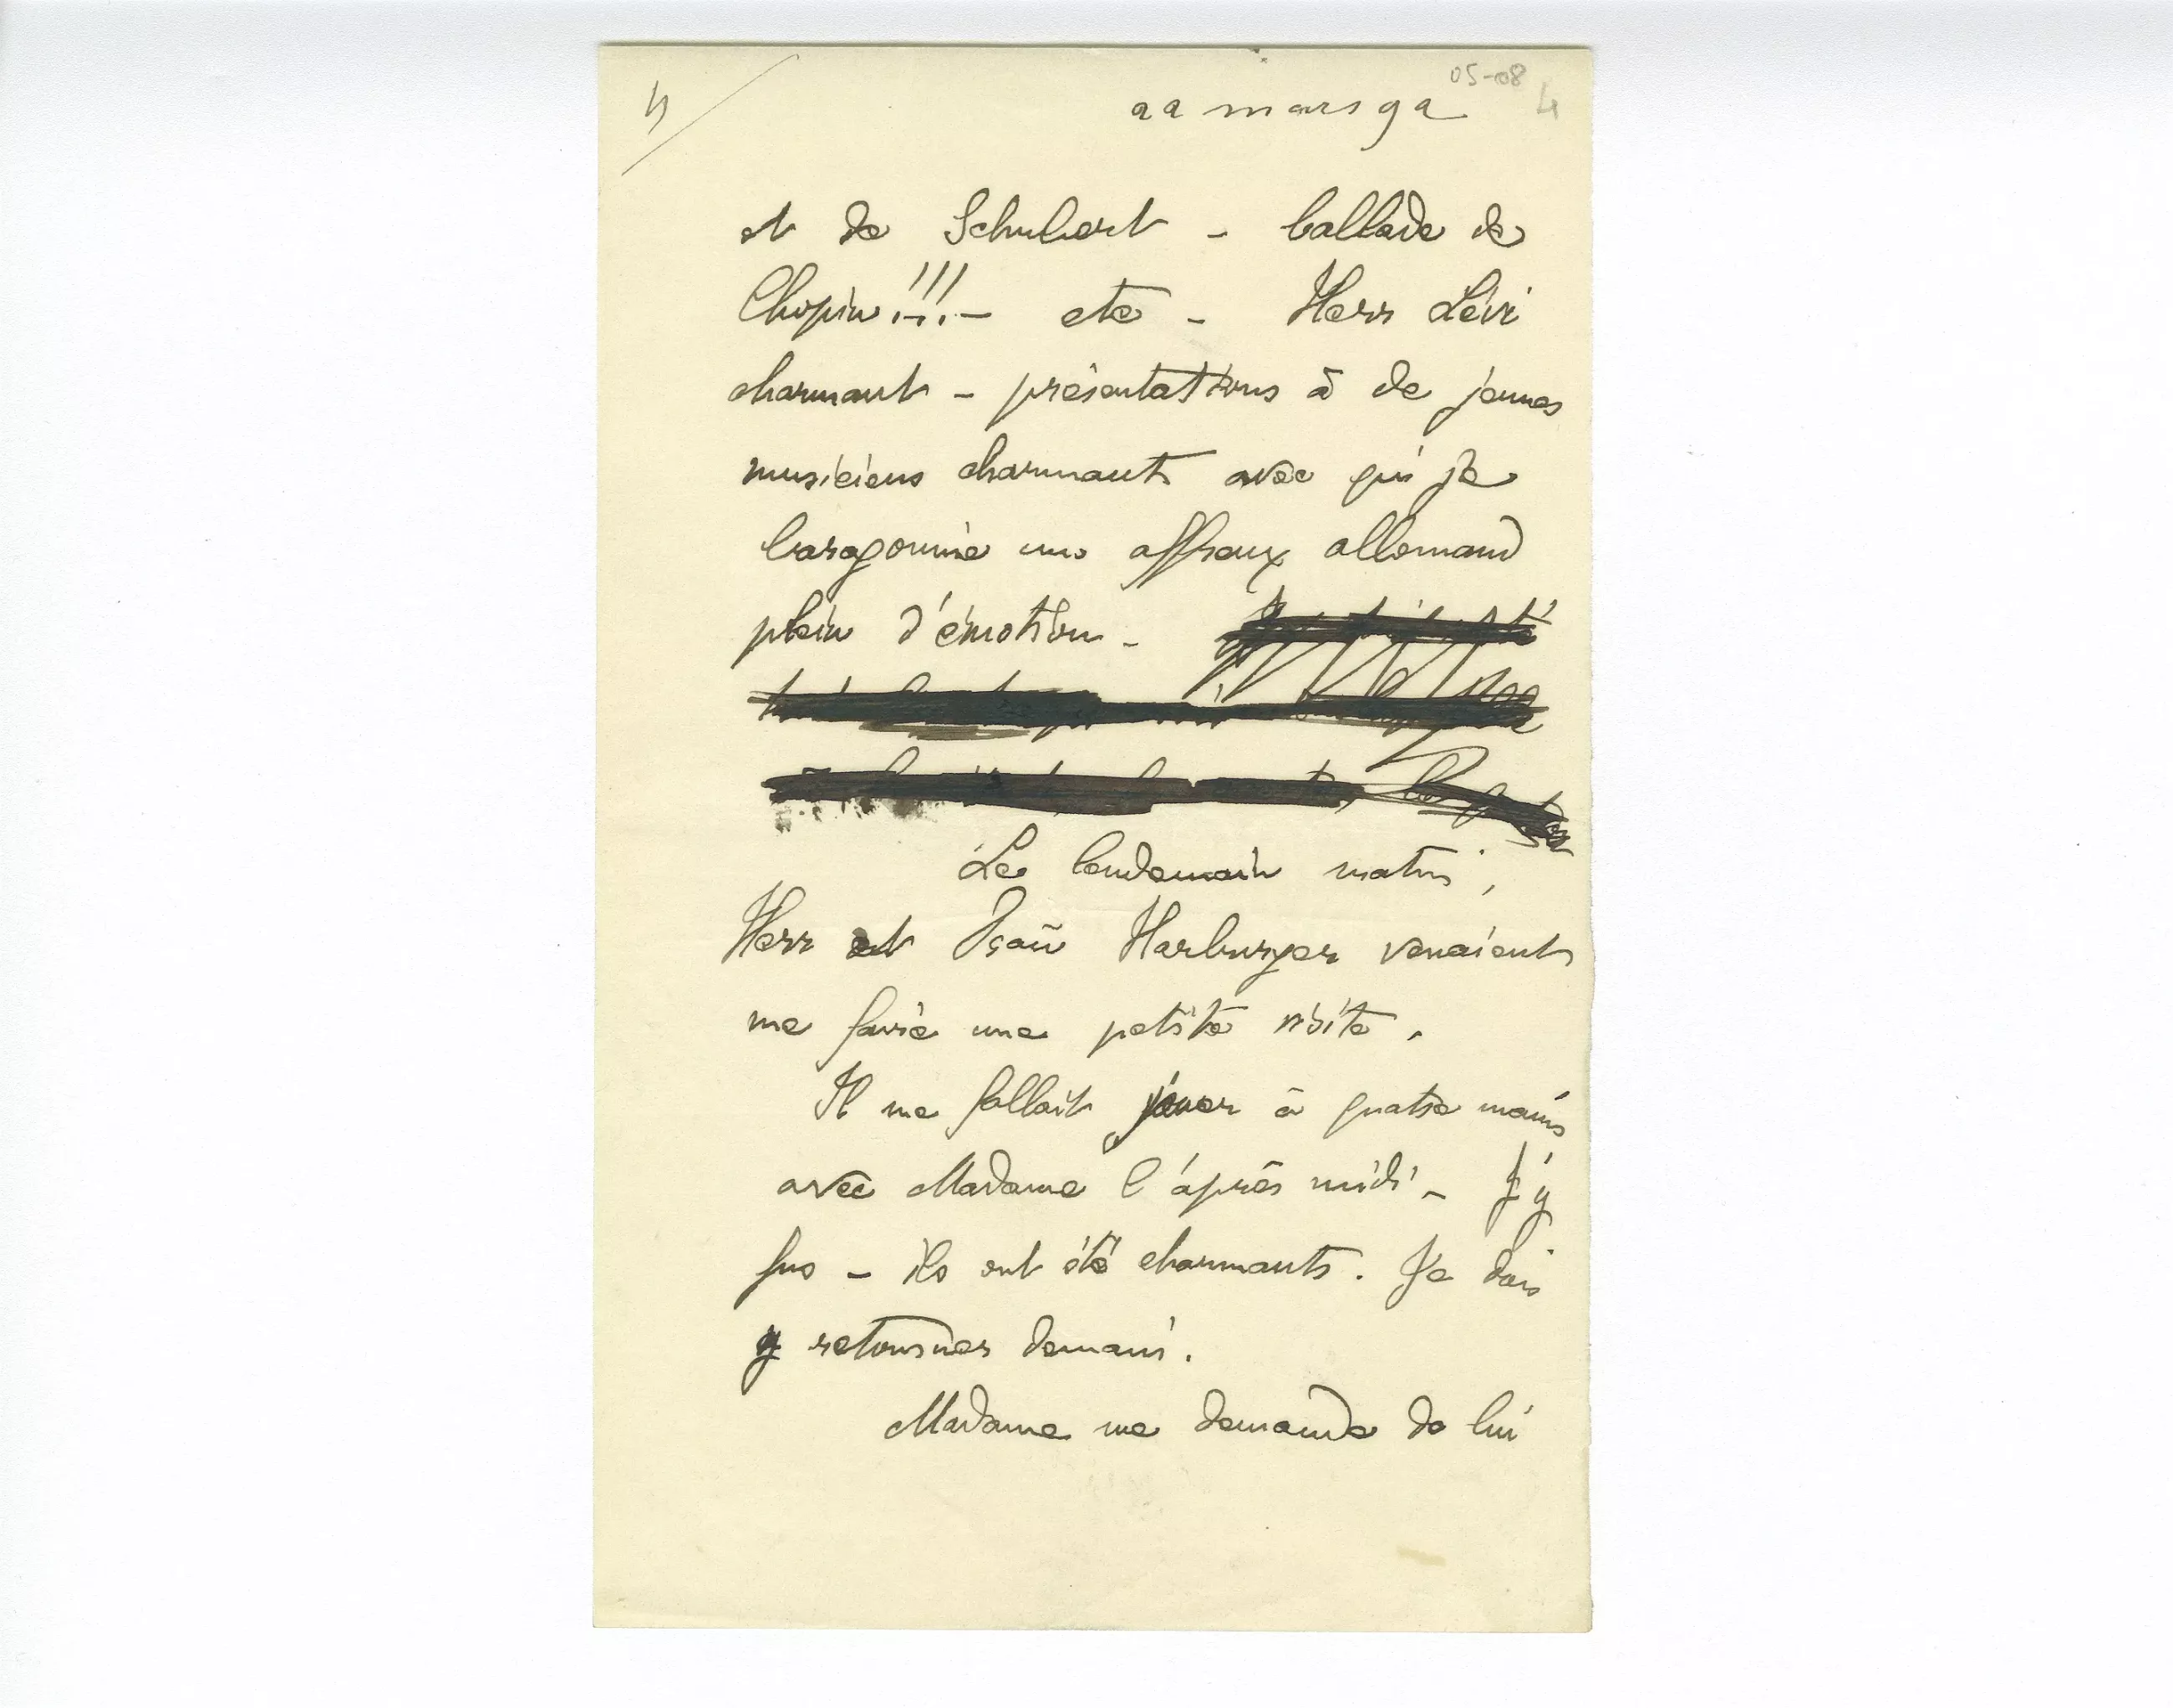 4
05-08
4
22 mars 92
et de Schubert - ballade de
Chopin!!! - etc - Herr Lévi
charmant - présentations à de jeunes
musiciens charmants avec qui je
baragouine un affreux allemand
plein d'émotion -
Le lendemain matin,
Herr et Fraü Harburger venaient
me faire une petite visite.
Il me fallait jouer à quatre mains
avec Madame l'après midi - J'y
fus - ils ont été charmants. Je dois
y retourner demain.
Madame me demande de lui